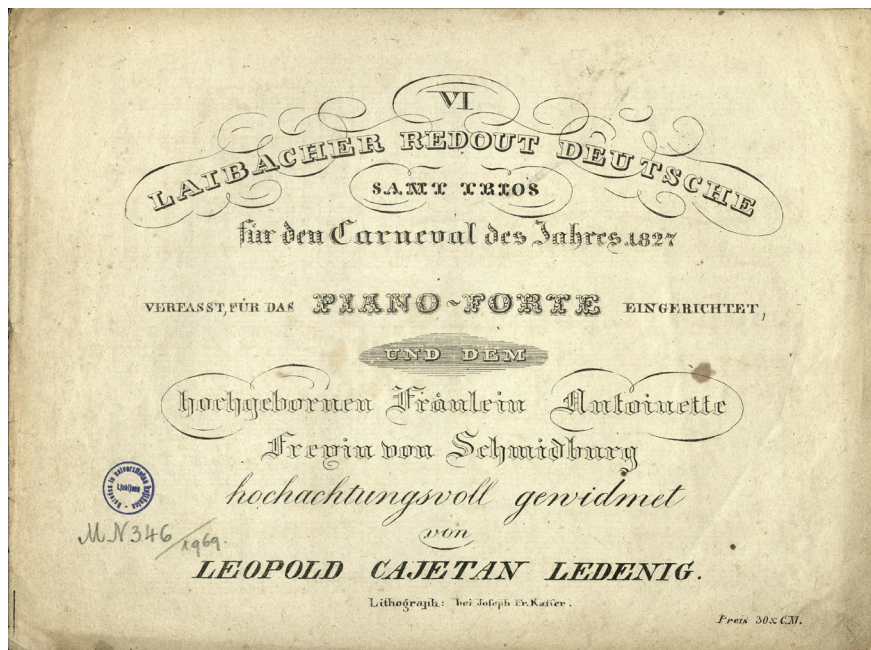 VI
LAIBACHER REDOUT DEUTSCHE
SAMT TRIOS
für den Carneval des Jahres 1827
VERFASST, FÜR DAS PIANO-FORTE EINGERICHTET,
UND DEM
hochgebornen Fräulein Antoinette
Freyin von Schmidburg
hochachtungsvoll gewidmet
von
LEOPOLD CAJETAN LEDENIG.
Lithograph: bei Joseph Fr. Kaiser.
Preis 30x C.M.
Narodna in univerzitetna knjižnica - Ljubljana
M N 346/1969.